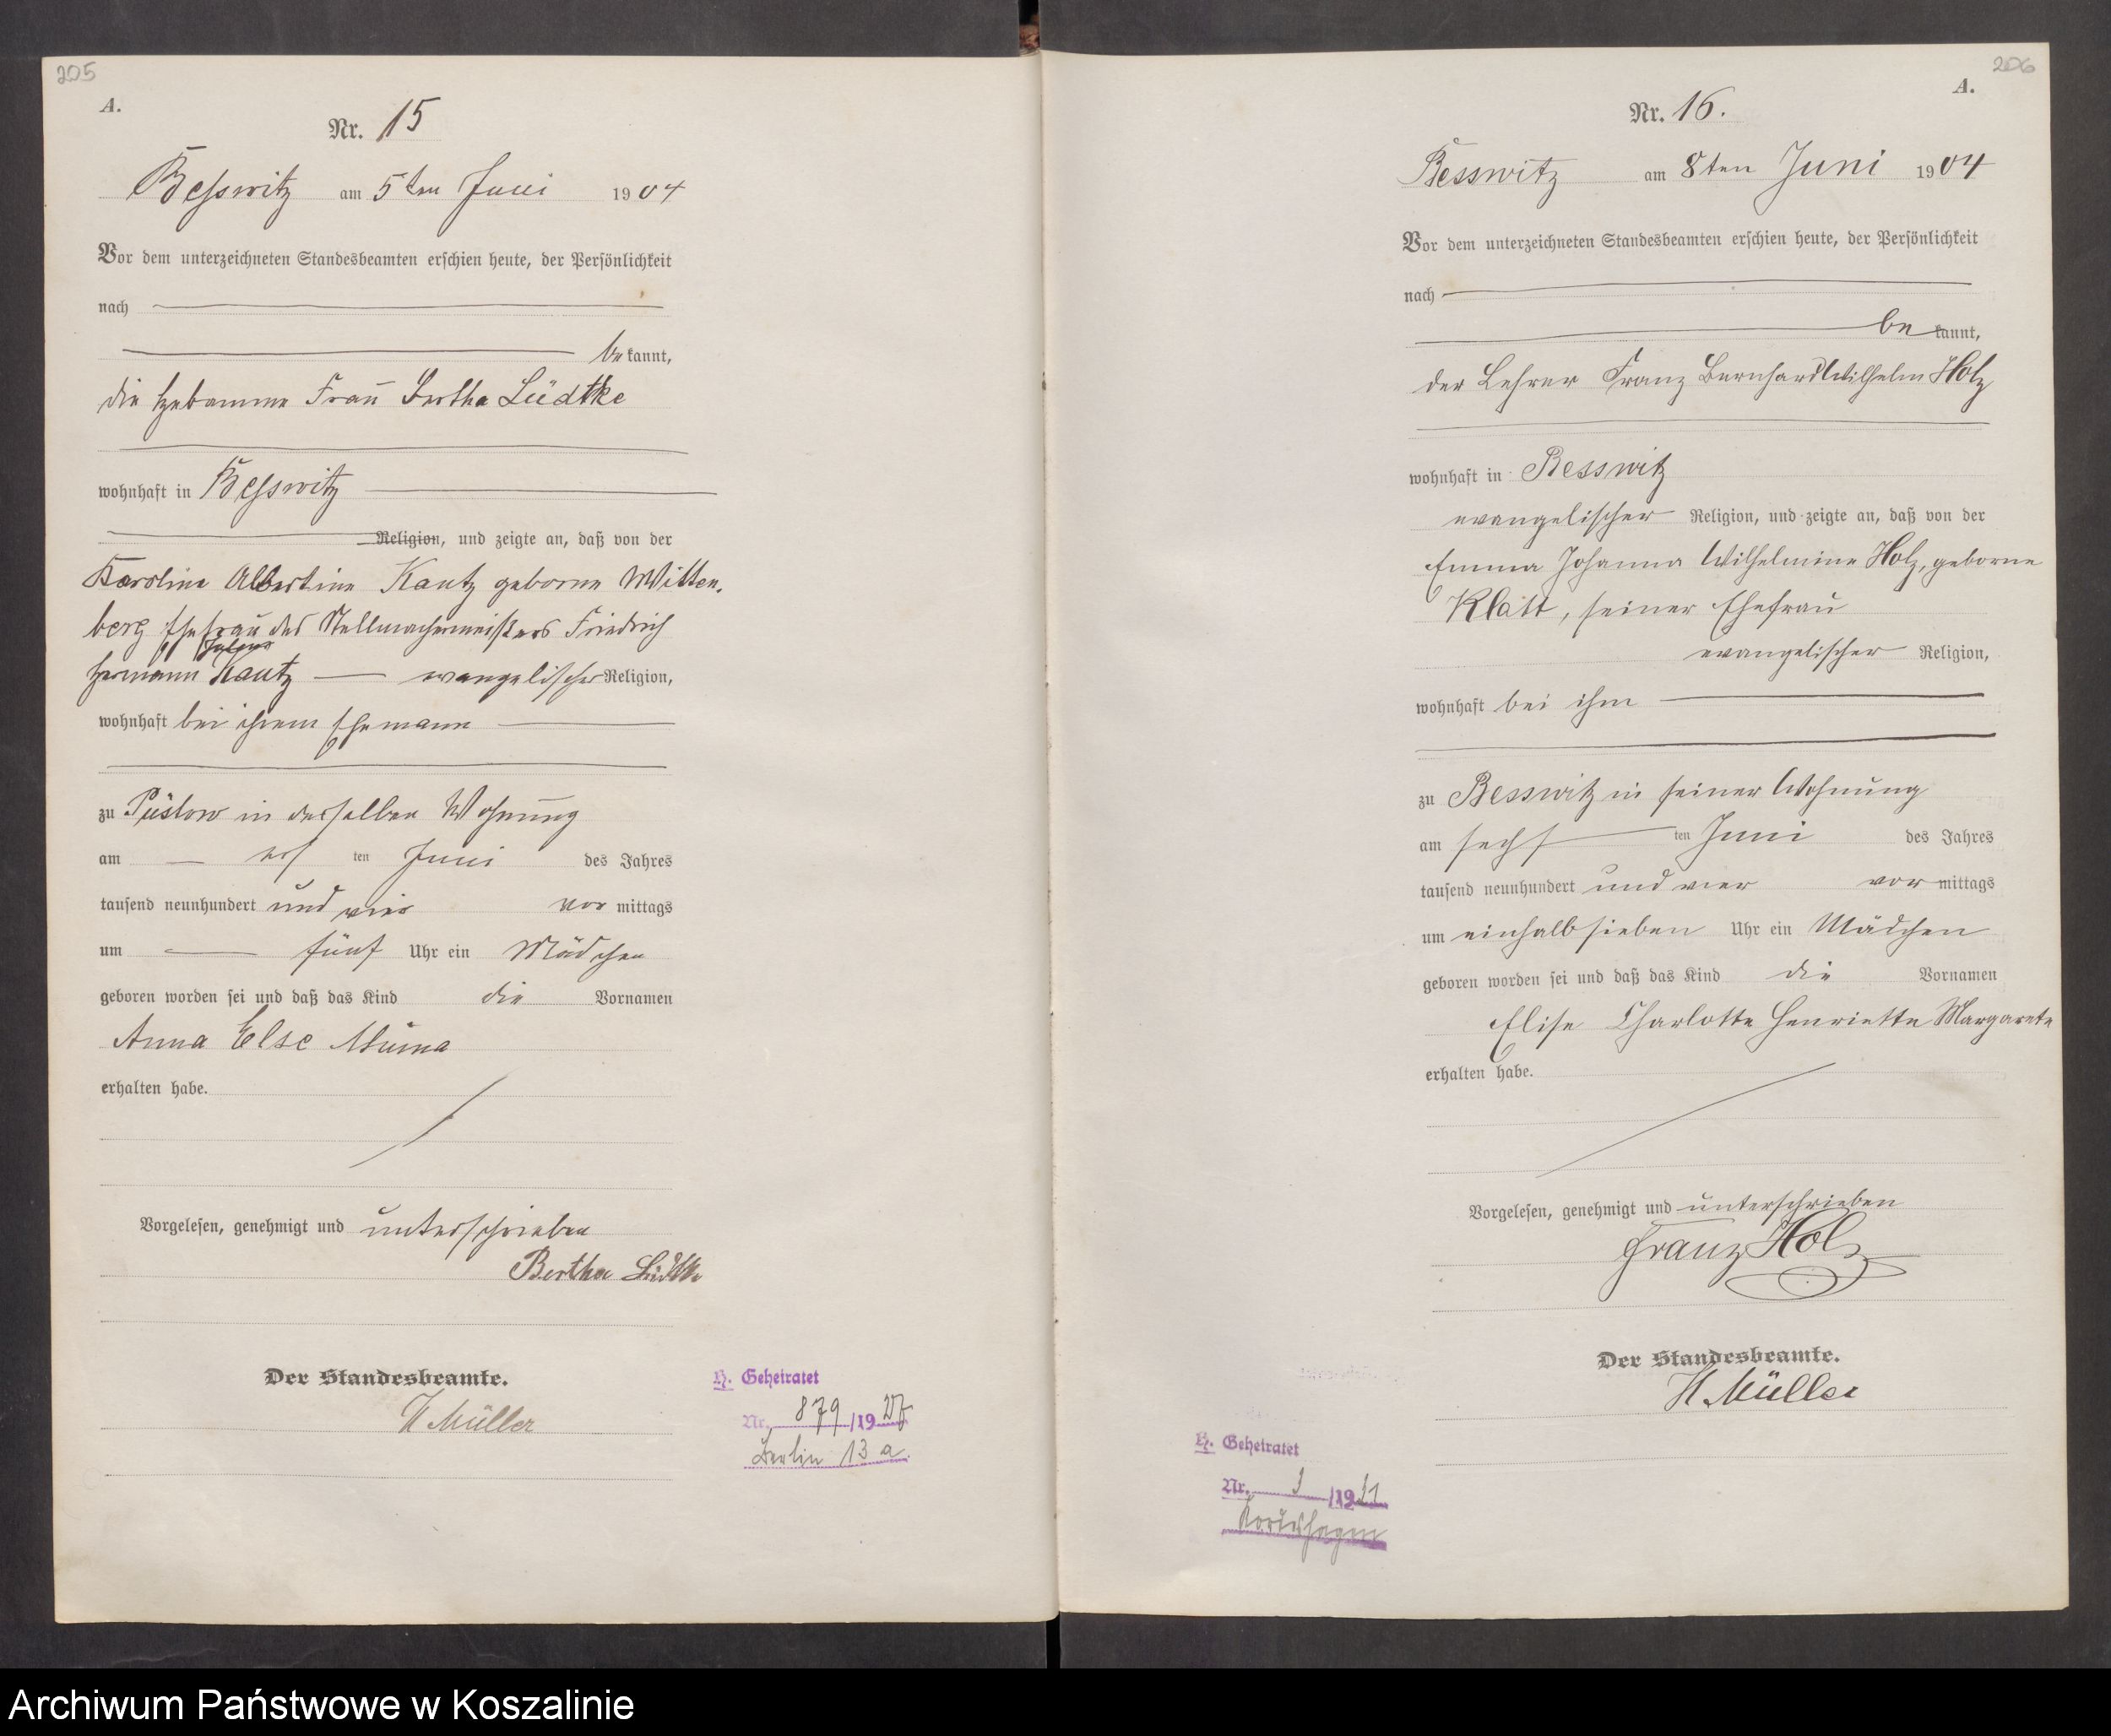 205
A.
Nr. 15
Besswitz am 5ten Juni 1904
Vor dem unterzeichneten Standesbeamten erschien heute, der Persönlichkeit
nach
bekannt,
die Hebamme Frau Bertha Lüdtke
wohnhaft in Besswitz
Religion, und zeigte an, daß von der
Karoline Albertine Kautz geborne Witten-
berg Ehefrau des Stellmachermeisters Friedrich
Julius
Hermann Kautz evangelischer Religion,
wohnhaft bei ihrem Ehemann
zu Püstow in desselben Wohnung
am ten Juni des Jahres
tausend neunhundert und vier vor mittags
um fünf Uhr ein Mädchen
geboren worden sei und daß das Kind die Vornamen
Anna Else
erhalten habe.
Vorgelesen, genehmigt und unterschrieben
Bertha Lüdtke
Der Standesbeamte.
H Müller
H. Geheiratet
Nr. 879/1927
Berlin 13 a.
206
A.
Nr. 16.
Besswitz am 8ten Juni 1904
Vor dem unterzeichneten Standesbeamten erschien heute, der Persönlichkeit
nach
bekannt,
der Lehrer Franz Bernhard Wilhelm Holz
wohnhaft in Besswitz
evangelischer Religion, und zeigte an, daß von der
Emma Johanna Wilhelmine Holz, geborne
Klatt, seiner Ehefrau
evangelischer Religion,
wohnhaft bei ihm
zu Besswitz in seiner Wohnung
am sechsten Juni des Jahres
tausend neunhundert und vier vor mittags
um einhalb sieben Uhr ein Mädchen
geboren worden sei und daß das Kind die Vornamen
Elise Charlotte Henriette Margarete
erhalten habe.
Vorgelesen, genehmigt und unterschrieben
Franz Holz
Der Standesbeamte.
H. Müller
H. Geheiratet
Nr. /19
Archiwum Państwowe w Koszalinie